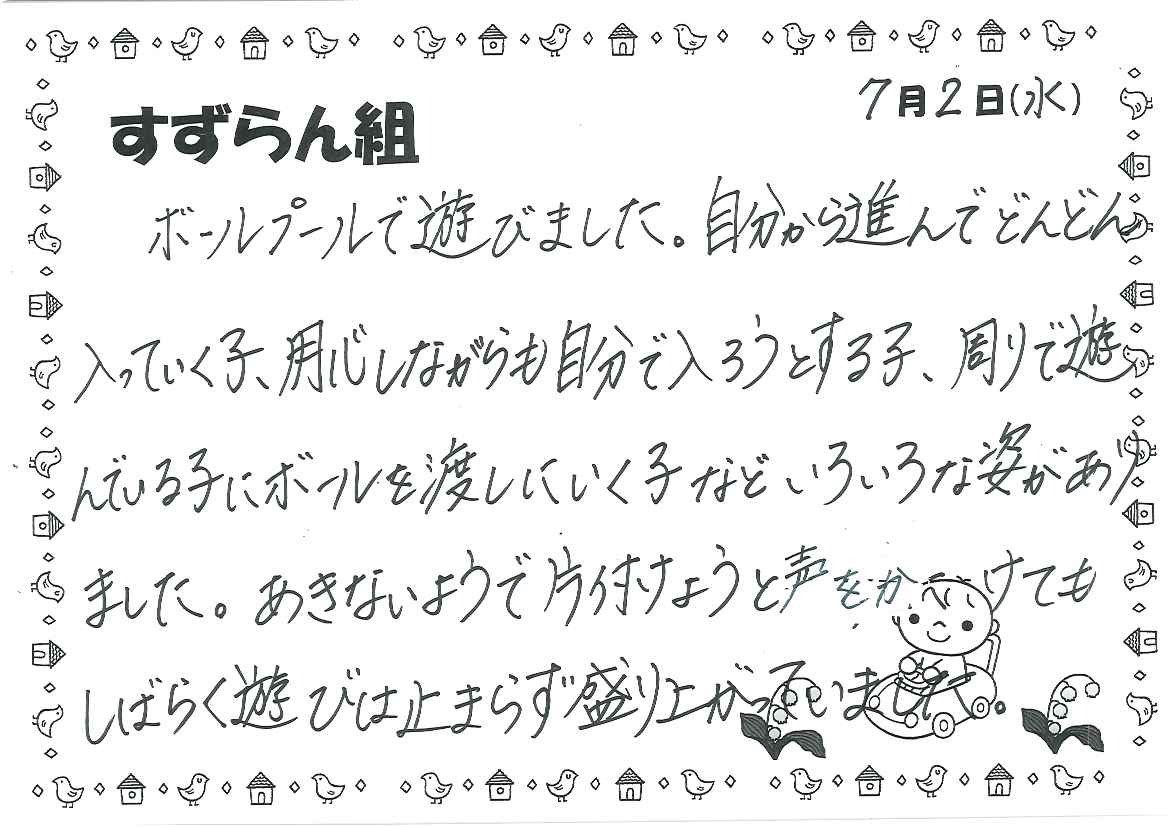 7月2日(水)
すずらん組
ボールプールで遊びました。自分から進んでどんどん
入っていく子、用心しながらも自分で入ろうとする子、周りで遊
んでいる子にボールを渡しにいく子などいろいろな姿があり
ました。あきないようで片付けようと声をかけても
しばらく遊びは止まらず盛り上がっていました。